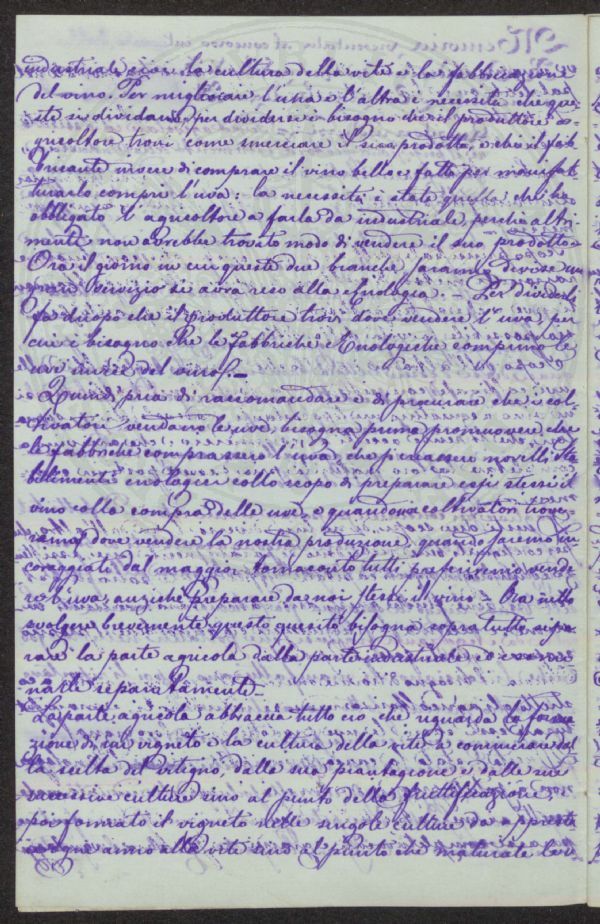 industriale cioè la cultura della vite e la fabbricazione
del vino. Per migliorare l'una e l'altra è necessità che que
ste si dividano, per dividersi è bisogno che il produttore a-
gricoltore trovi come smerciare il suo prodotto, e che il fab
bricante invece di comprare il vino bello e fatto per manifat
turarlo compri l'uva; la necessità è stata quella che ha
obbligato l'agricoltore a farla da industriale perchè altri
menti non avrebbe trovato modo di vendere il suo prodotto.
Ora il giorno in cui queste due branche saranno divise un
vero servizio si avrà reso alla Enologia. — Per dividerle
fa d'uopo che il Produttore trovi dove vendere l'uva, per
cui è bisogno che le fabbriche Enologiche comprino le
uve invece del vino. —
Quindi pria di raccomandare e di procurare che i col-
tivatori vendano le uve bisogna prima promuovere che
le fabbriche comprassero l'uva, che si creassero novelli sta
bilimenti enologici collo scopo di preparare essi stessi il
vino colla compra delle uve, e quando noi coltivatori trove
remo dove vendere la nostra produzione, quando saremo in
coraggiati dal maggior tornaconto tutti preferiremo vende
re l'uva, anziché preparare da noi stessi il vino. Ora
svolgere brevemente questo quesito bisogna sopra tutto sepa
rare la parte agricola dalla parte industriale ed esami
narle separatamente —
La parte agricola abbraccia tutto ciò che riguarda la forma
zione di un vigneto e la cultura della vite a cominciare dal
la scelta del vitigno, dalla sua piantagione e dalle sue
successive culture sino al punto della fruttificazione,
poi formato il vigneto nelle singole culture da apprestarsi
in ogni anno alla vite sino al punto che maturate le u-